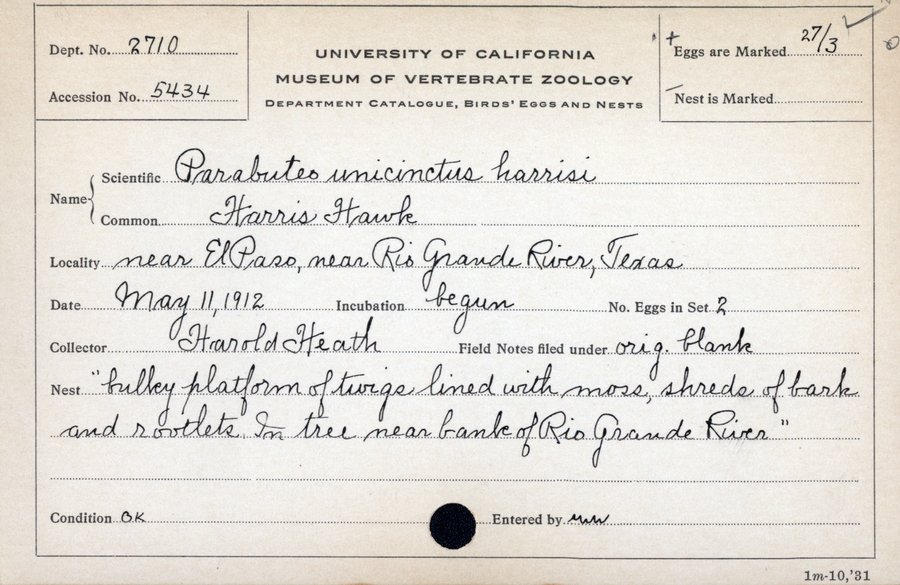 Dept. No. 2710
Accession No. 5434
UNIVERSITY OF CALIFORNIA
MUSEUM OF VERTEBRATE ZOOLOGY
DEPARTMENT CATALOGUE, BIRDS' EGGS AND NESTS
Eggs are Marked 27/3
Nest is Marked
Name
Scientific Parabuteo unicinctus harrisi
Common Harris Hawk
Locality near El Paso, near Rio Grande River, Texas
Date May 11, 1912 Incubation begun No. Eggs in Set 2
Collector Harold Heath Field Notes filed under orig. blank
Nest "bulky platform of twigs lined with moss, shreds of bark
and rootlets. In tree near bank of Rio Grande River"
Condition OK Entered by
1m-10,'31